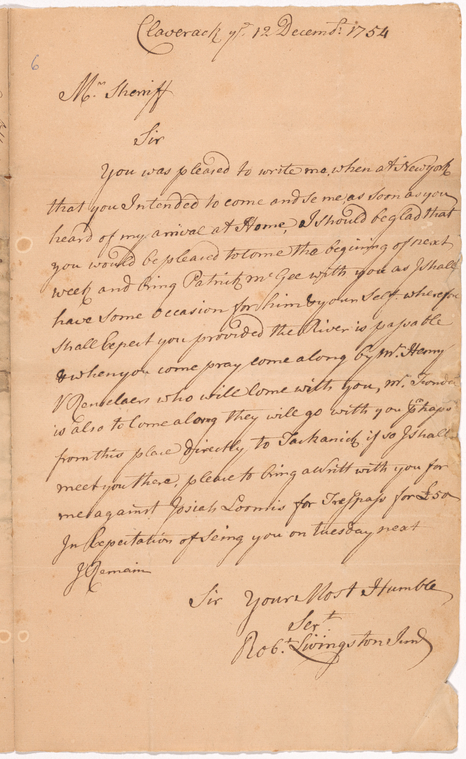 Claverack ye 12 Decembr. 1754
6
Mr. Sherriff
Sir
You was pleased to write me, when at Newyork
that you Intended to come and se me, as soon as you
heard of my arrival at Home, I should be glad that
you would be pleased to Come the begining of next
week and bring Patrick Mc Gee with you as I shall
have some occasion for him & your Self wherefore
shall Expect you provided the River is passable
& when you come pray come along by Mr. Henry
V Renselaers who will Come with you, Mr.
is also to Come along they will go with you perhaps
from this place directly to Tachanick if so I shall
meet you there. please to bring a Writt with you for
me against Josiah Loomis for Trespass for £50
In Expectation of Seing you on tuesday next
I Remain
Sir Your Most Humble
Sert
Robt. Livingston Junr